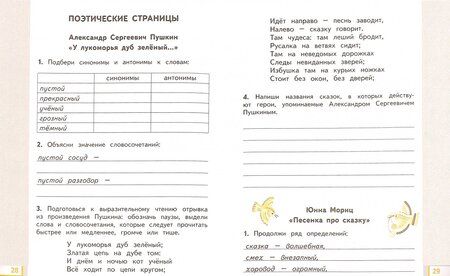 ПОЭТИЧЕСКИЕ СТРАНИЦЫ
Александр Сергеевич Пушкин
«У лукоморья дуб зелёный...»
1. Подбери синонимы и антонимы к словам:
синонимы антонимы
пустой
прекрасный
учёный
грозный
тёмный
2. Объясни значение словосочетаний:
пустой сосуд –
пустой разговор –
3. Подготовься к выразительному чтению отрывка
из произведения Пушкина: обозначь паузы, выдели
слова и словосочетания, которые следует прочитать
быстрее или медленнее, громче или тише.
У лукоморья дуб зелёный;
Златая цепь на дубе том:
И днём и ночью кот учёный
Всё ходит по цепи кругом;
28
Идёт направо – песнь заводит,
Налево – сказку говорит.
Там чудеса: там леший бродит,
Русалка на ветвях сидит;
Там на неведомых дорожках
Следы невиданных зверей;
Избушка там на курьих ножках
Стоит без окон, без дверей;
4. Напиши названия сказок, в которых действу-
ют герои, упоминаемые Александром Сергеевичем
Пушкиным.
Юнна Мориц
«Песенка про сказку»
1. Продолжи ряд определений:
сказка – волшебная,
смех – внезапный,
хоровод – огромный,
29